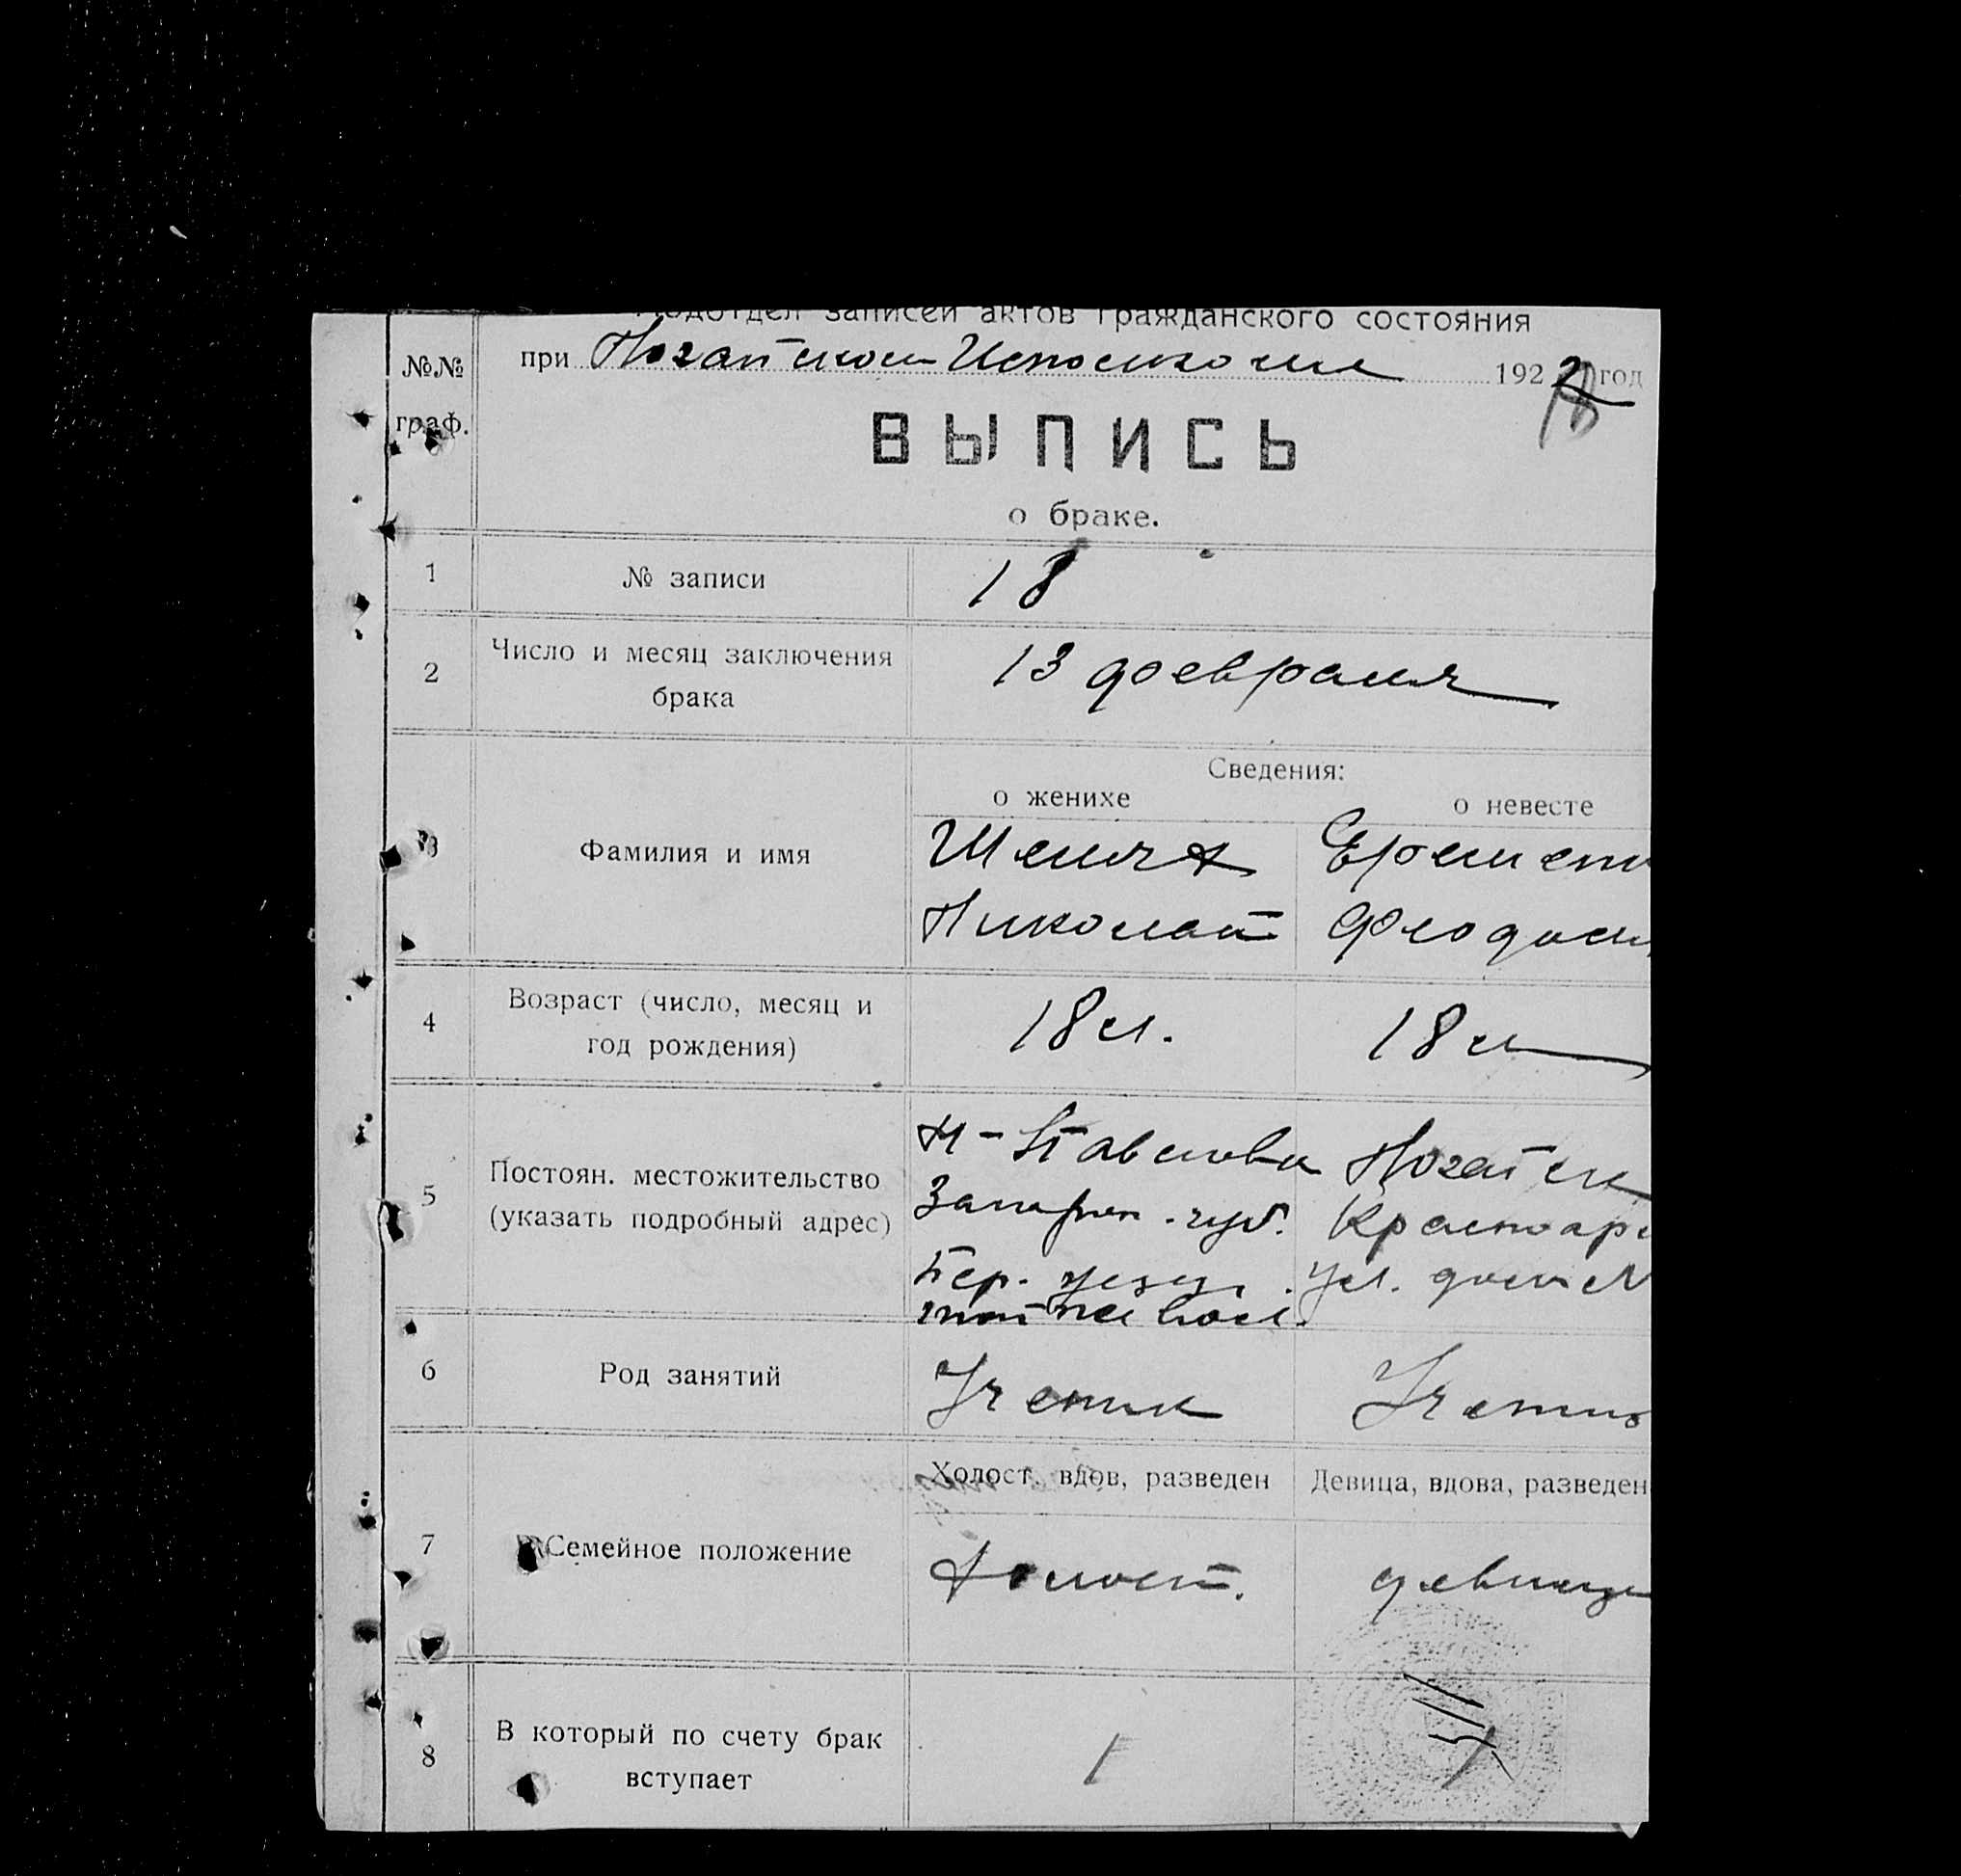 Подотдел записей актов гражданского состояния
№№ граф.
при Ногайском Исполкоме 1922 год
ВЫПИСЬ
о браке.
1 № записи 18
2 Число и месяц заключения брака 13 февраля
Сведения:
о женихе о невесте
3 Фамилия и имя
Николай
4 Возраст (число, месяц и год рождения) 18 л. 18 л
5 Постоян. местожительство (указать подробный адрес)
Ногайск
губ. Красноар
Бер. уезд. ул. дом №
6 Род занятий Ученик Учениц
Холост, вдов, разведен Девица, вдова, разведен
7 Семейное положение Холост. девица
8 В который по счету брак вступает 1 1